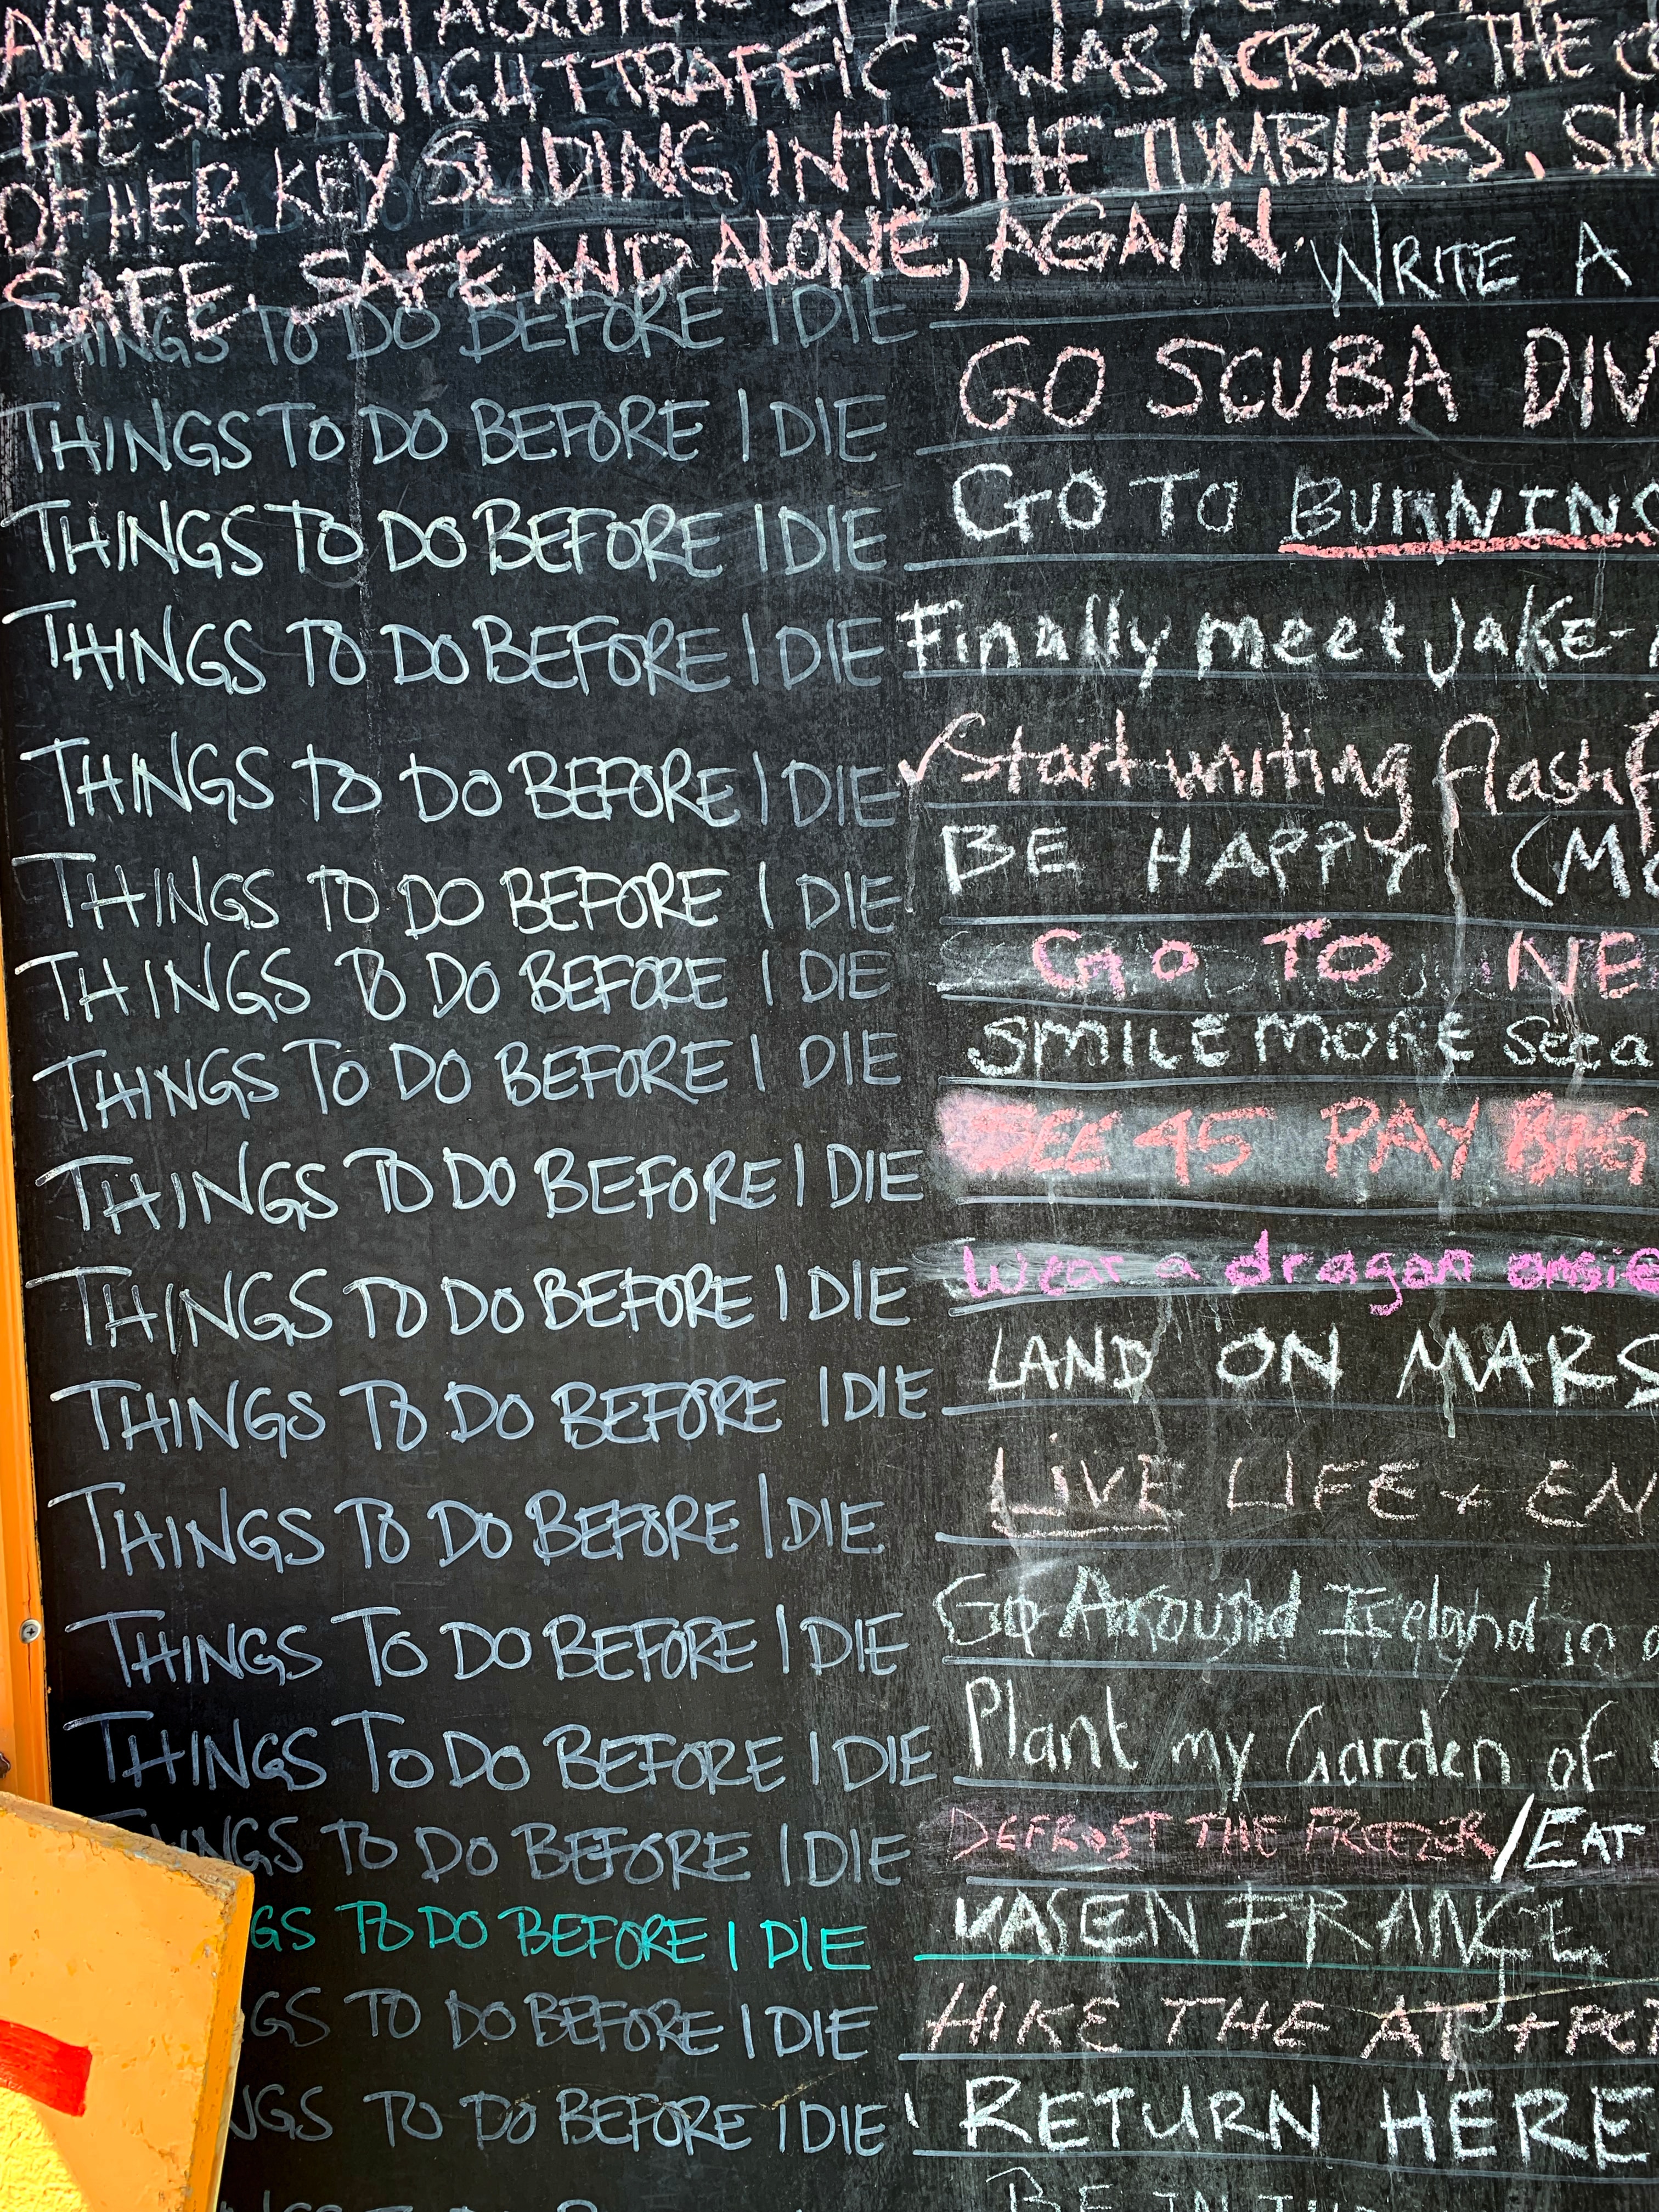 AWAY. WITH
THE SLOW NIGHT TRAFFIC & WAS ACROSS. THE
OF HER KEY SLIDING INTO THE TUMBLERS. SH
SAFE. SAFE AND ALONE, AGAIN.
THINGS TO DO BEFORE I DIE WRITE A
THINGS TO DO BEFORE I DIE GO SCUBA DIV
THINGS TO DO BEFORE I DIE GO TO BURNING
THINGS TO DO BEFORE I DIE Finally meet Jake-
THINGS TO DO BEFORE I DIE Start writing flash f
THINGS TO DO BEFORE I DIE BE HAPPY (MO
THINGS TO DO BEFORE I DIE GO TO NE
THINGS TO DO BEFORE I DIE SMILE MORE
THINGS TO DO BEFORE I DIE SEE 45 PAY BIG
THINGS TO DO BEFORE I DIE Wear a dragon onsie
THINGS TO DO BEFORE I DIE LAND ON MARS
THINGS TO DO BEFORE I DIE LIVE LIFE + EN
THINGS TO DO BEFORE I DIE Go Around Iceland in a
THINGS TO DO BEFORE I DIE Plant my Garden of
THINGS TO DO BEFORE I DIE DEFROST THE FREEZER/EAT
GS TO DO BEFORE I DIE FRANCE
GS TO DO BEFORE I DIE HIKE THE AT + PCT
NGS TO DO BEFORE I DIE RETURN HERE
BE IN THE